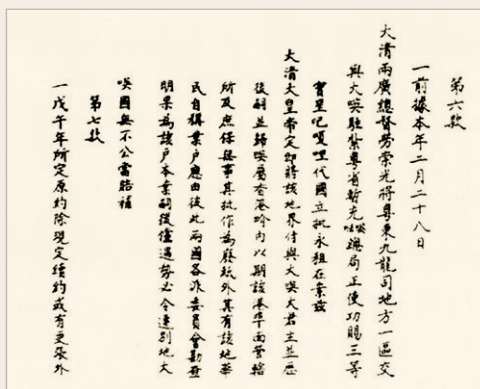 第六款
一前據本年二月二十八日
大清兩廣總督勞崇光將粵東九龍司地方一區交
與大㖤駐紮粵省暫充㖤𠵽總局正使功賜三等
寶星吧嗄哩代國立批永租在案茲
大清大皇帝定即將該地界付與大㖤大君主並歷
後嗣並歸㖤屬香港界內以期該港埠面管轄
所及庶保無事其批作為廢紙外其有該地華
民自稱業戶應由彼此兩國各派委員會勘查
明果為該戶本業嗣後倘遇勢必令遷別地大
㖤國無不公當賠補
第七款
一戊午年所定原約除現定續約或有更張外